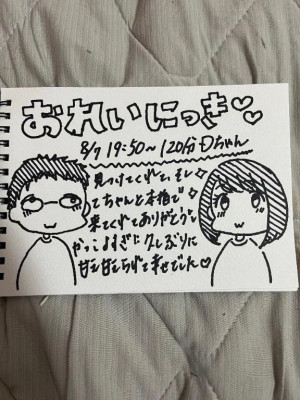 おれいにっき♡♡
8/7 19:50〜120分 Dちゃん
見つけてくれて、そし
てちゃんと本指で
来てくれてありがとう。
かっこよすぎに久しぶりに
甘え甘えちらして幸せでした♡